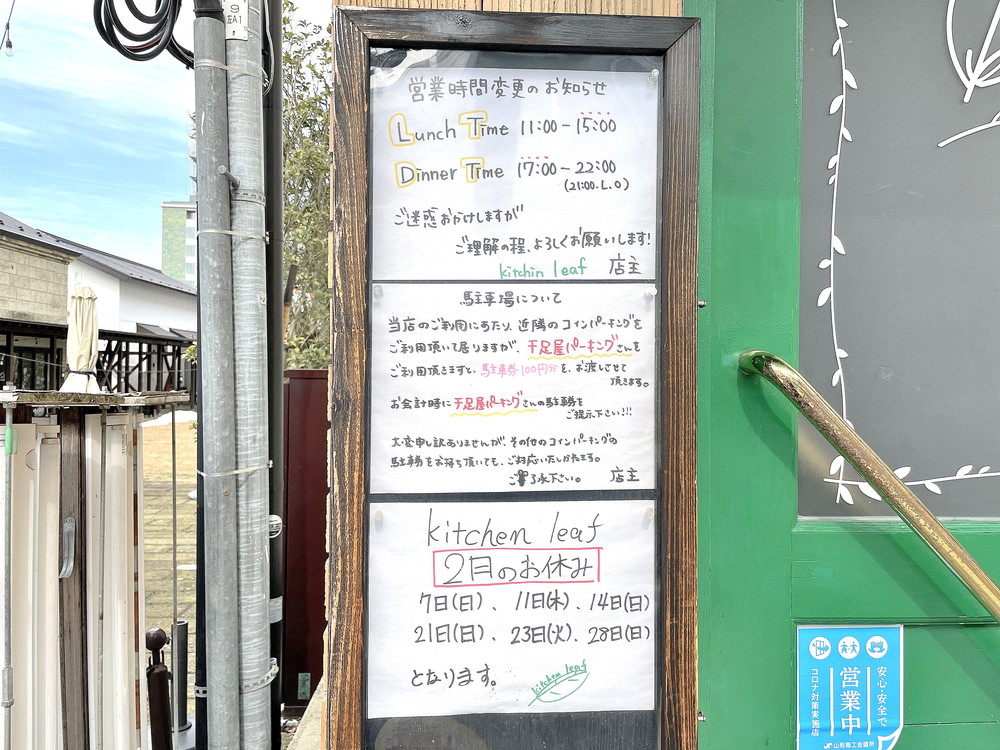 営業時間変更のお知らせ
Lunch Time 11:00-15:00
Dinner Time 17:00-22:00
(21:00.L.O)
ご迷惑おかけしますが
ご理解の程、よろしくお願いします!
kitchin leaf 店主
駐車場について
当店のご利用にあたり、近隣のコインパーキングを
ご利用頂いて居りますが、千足屋パーキングさんを
ご利用頂きますと、駐車券100円分を、お渡しさせて
頂きます。
お会計時に千足屋パーキングさんの駐車券を
ご提示下さい!!!
大変申し訳ありませんが、その他のコインパーキングの
駐車券をお持ち頂いても、ご対応いたしかねます。
ご了承下さい。 店主
kitchen leaf
2月のお休み
7日(日)、11日(木)、14日(日)
21日(日)、23日(火)、28日(日)
となります。
kitchen leaf
安心・安全で
営業中
コロナ対策実施店
山形商工会議所
9
左A1